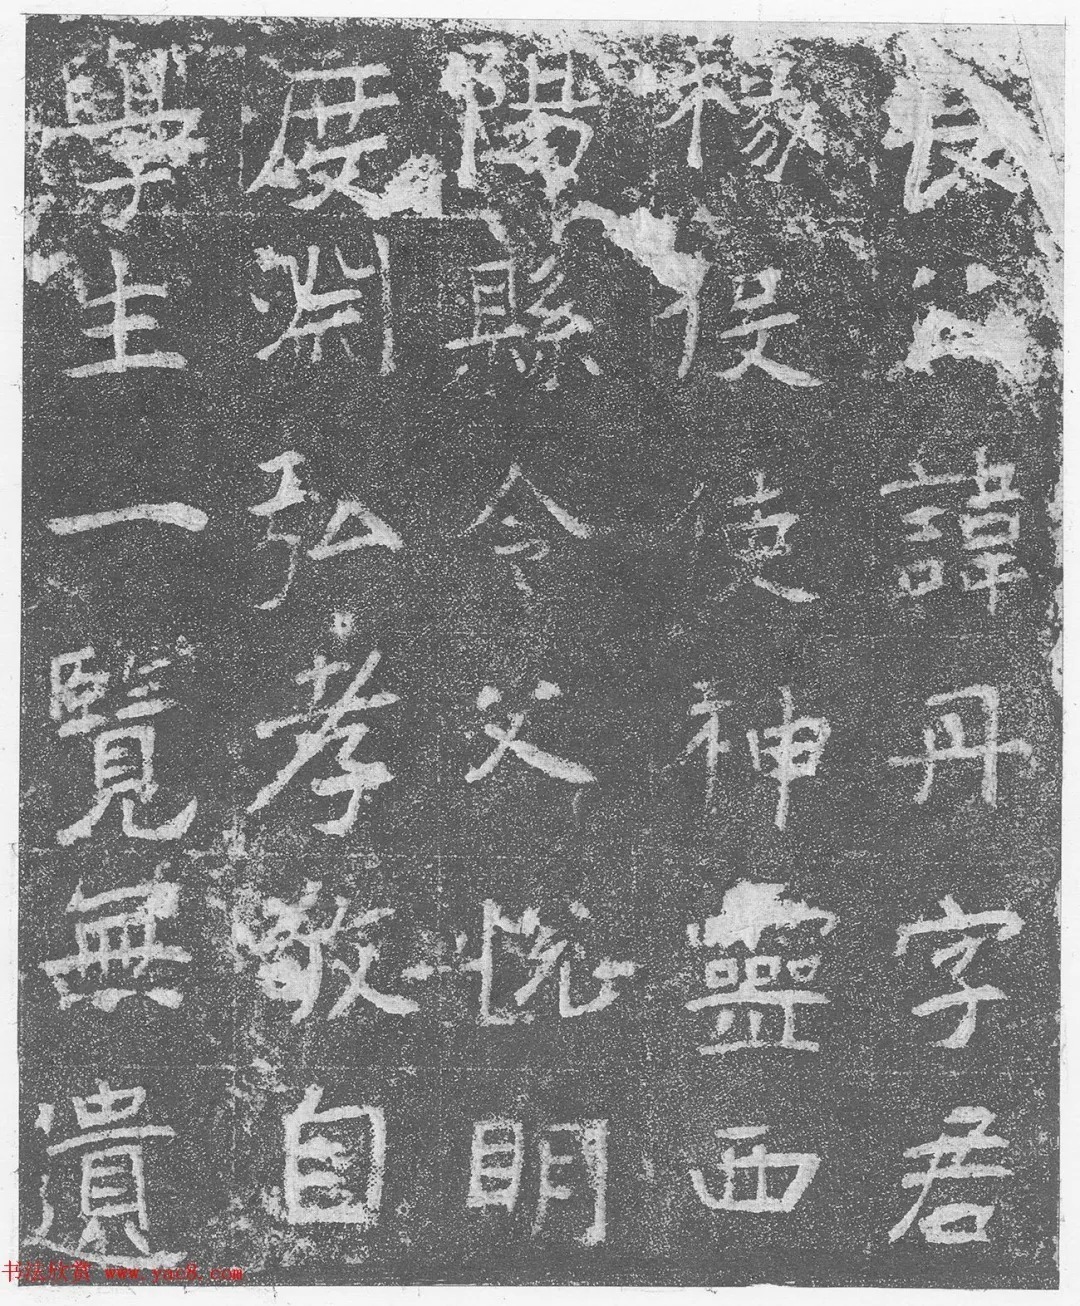 良公諱丹字君
役使神靈西
陽縣令父悅明
度淵弘孝敬自
學生一覽無遺
书法欣赏 www.yac8.com